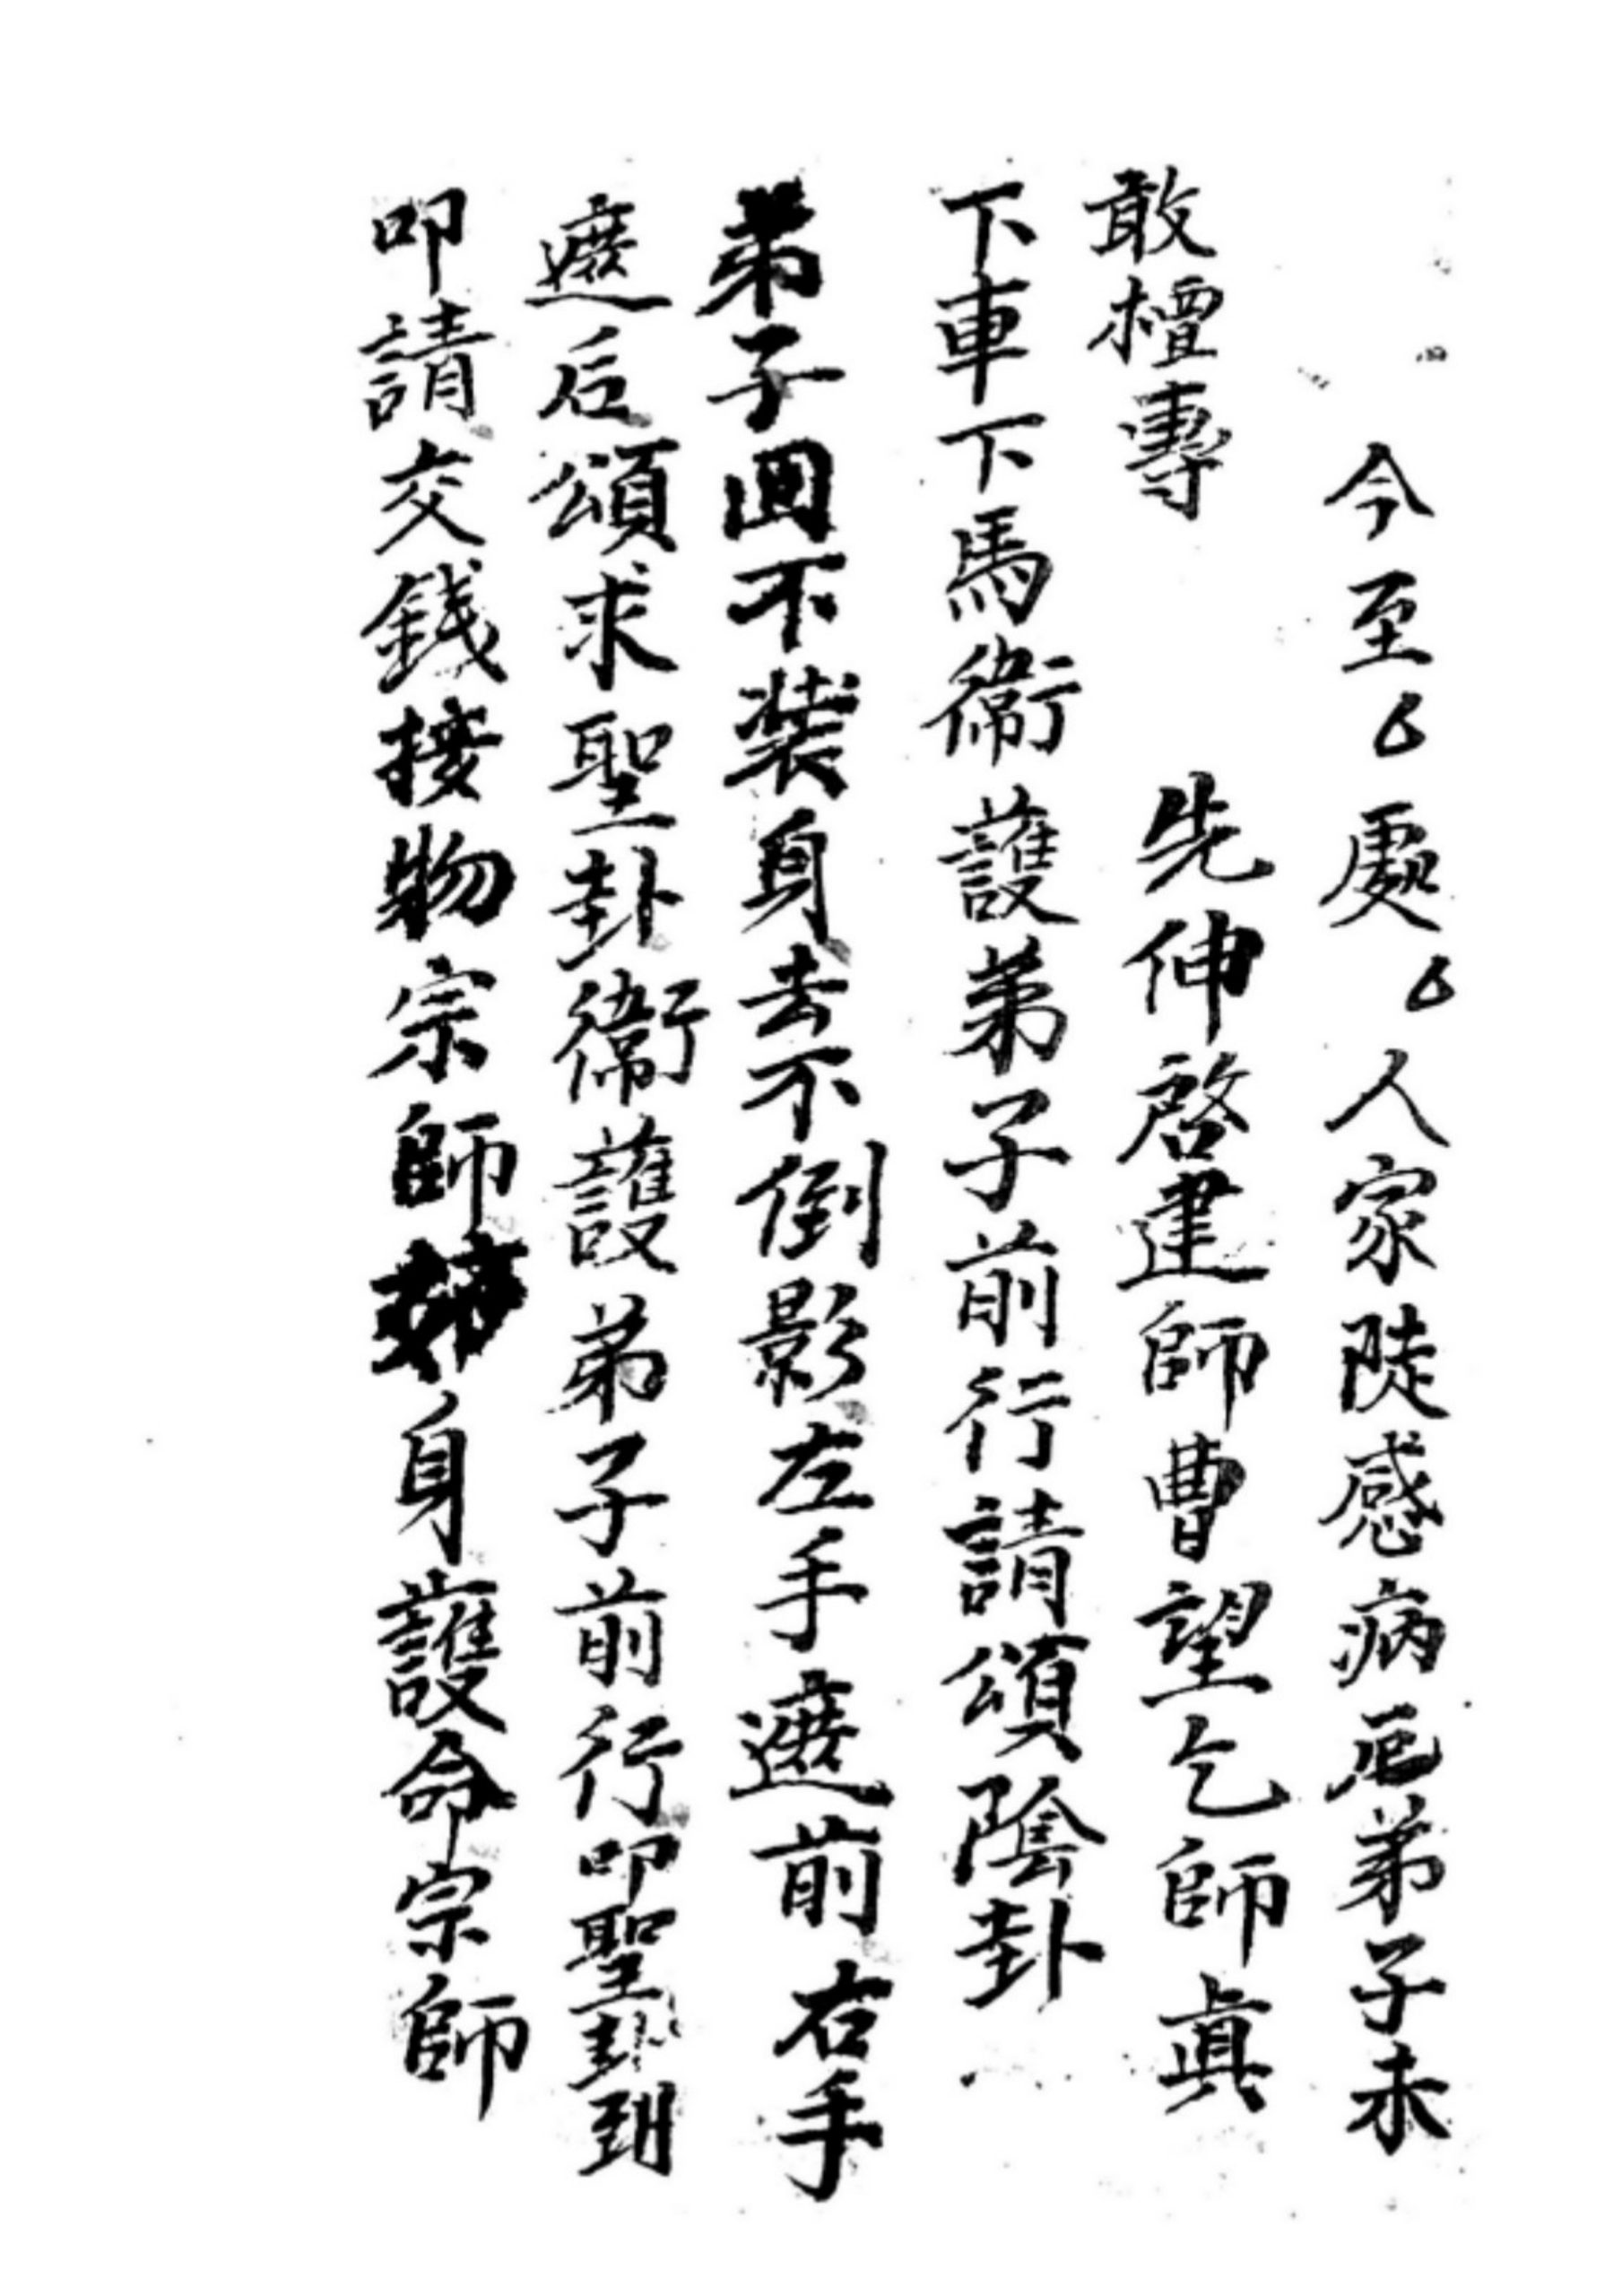 今至厶處厶人家陡感病厄弟子未
敢檀專 先伸啓建師曹望乞師眞
下車下馬衛護弟子前行請頒陰卦
弟子囬不装身去不倒影左手遮前右手
遮后頒求聖卦衛護弟子前行叩聖卦到
叩請交錢接物宗師身護命宗師